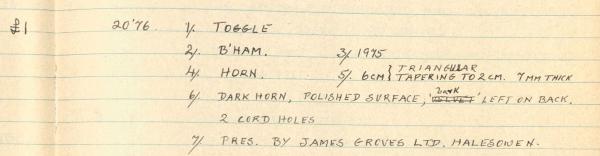 £1 20'76. 1/. TOGGLE
2/. B'HAM. 3/. 1975
4/. HORN. 5/. 6CM } TRIANGULAR TAPERING TO 2 CM. 7MM THICK
6/. DARK HORN, POLISHED SURFACE, 'BARK' LEFT ON BACK.
2 CORD HOLES
7/. PRES. BY JAMES GROVES LTD. HALESOWEN.